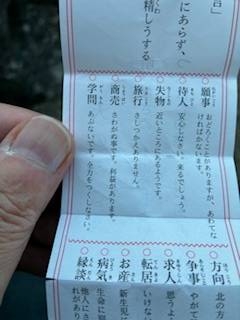 言」
にあらず、
精しうする
願事 おどろくことがありますが、あわてな
ければかないます。
待人 安心しなさい。来るでしょう。
失物 近いところにあるようです。
旅行 さしつかえありません。
商売 さわがぬ事です。利益があります。
学問 あぶないです。全力をつくしなさい。
方向 北の方
争事 やがて
求人 思うよ
転居 いけない
お産 新生児
病気 生命に
縁談 他人にさ
れがあり